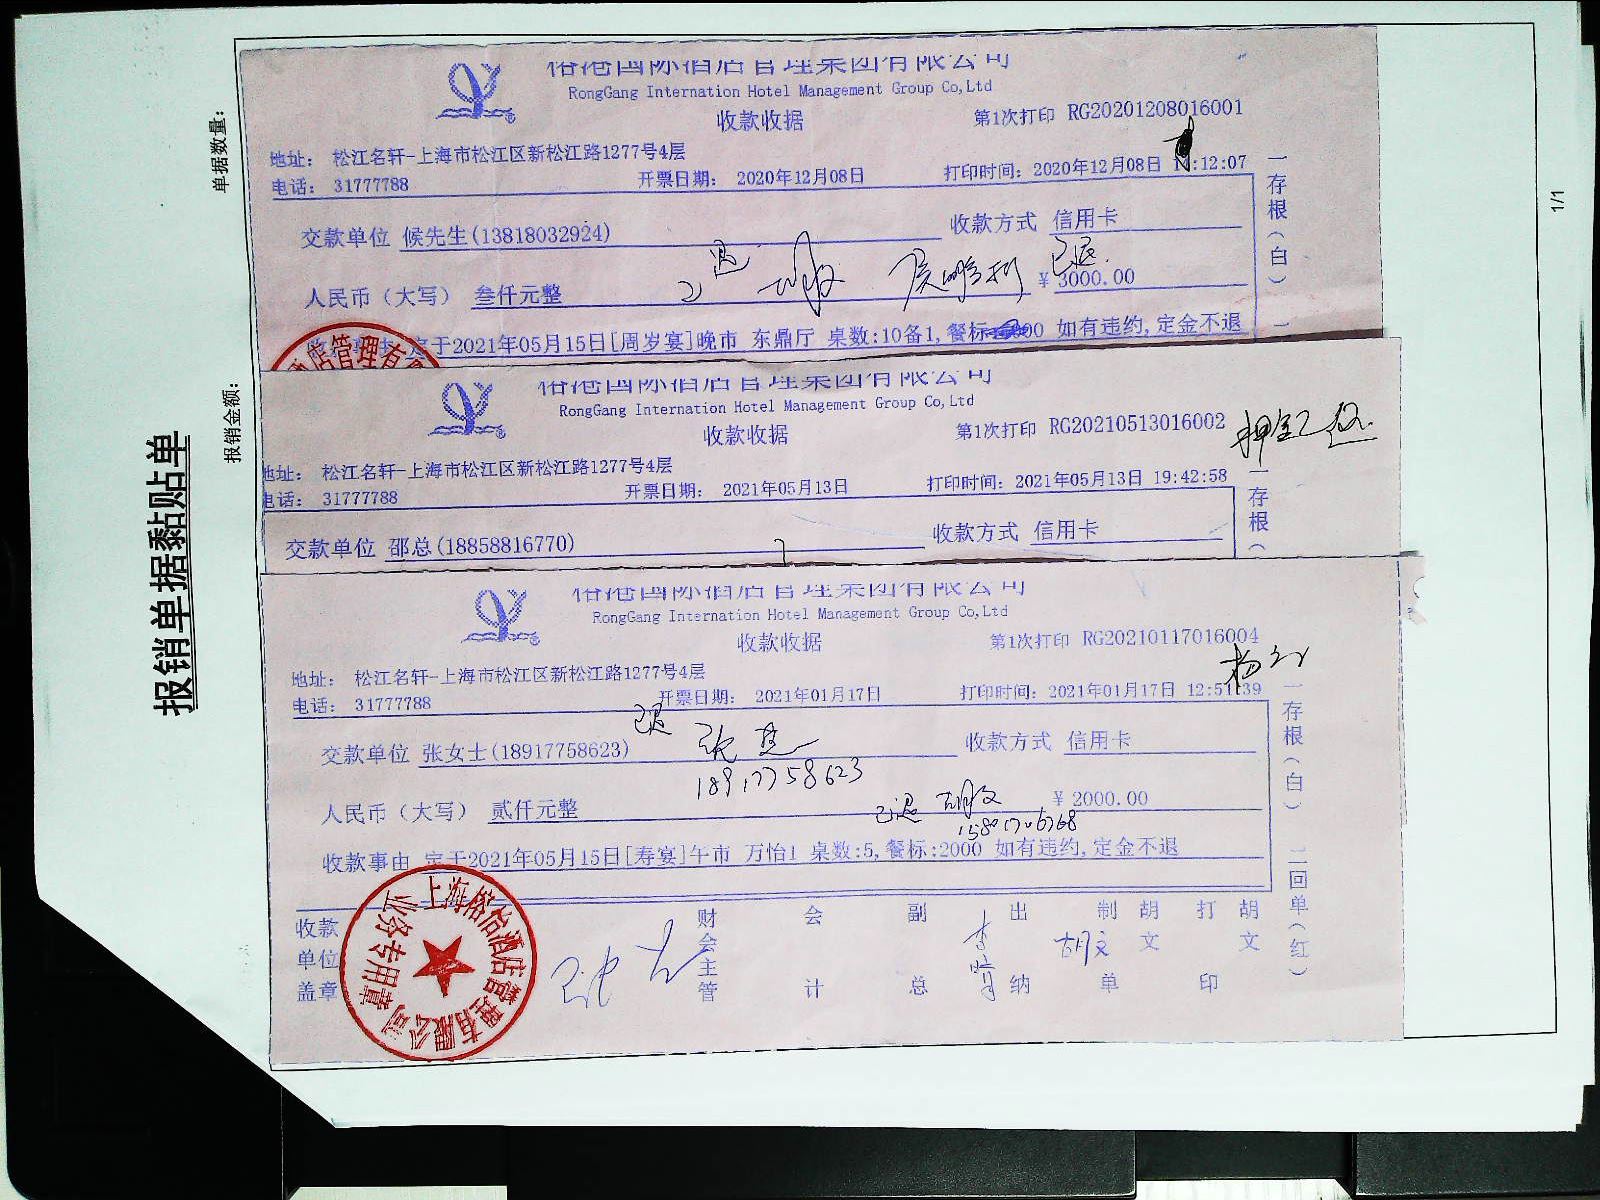 报销单据黏贴单
报销金额:
单据数量:
1/1
RongGang Internation Hotel Management Group Co,Ltd
收款收据
第1次打印 RG20201208016001
地址: 松江名轩-上海市松江区新松江路1277号4层
电话: 31777788 开票日期: 2020年12月08日 打印时间: 2020年12月08日 :12:07
交款单位 候先生(13818032924) 收款方式 信用卡
已退
人民币（大写） 叁仟元整 ¥ 3000.00
定于2021年05月15日[周岁宴]晚市 东鼎厅 桌数:10备1,餐标 如有违约,定金不退
一存根（白）
RongGang Internation Hotel Management Group Co,Ltd
收款收据
第1次打印 RG20210513016002
押金已退
地址: 松江名轩-上海市松江区新松江路1277号4层
电话: 31777788 开票日期: 2021年05月13日 打印时间: 2021年05月13日 19:42:58
交款单位 邵总(18858816770) 收款方式 信用卡
一存根（
RongGang Internation Hotel Management Group Co,Ltd
收款收据
第1次打印 RG20210117016004
地址: 松江名轩-上海市松江区新松江路1277号4层
电话: 31777788 开票日期: 2021年01月17日 打印时间: 2021年01月17日 12:51:39
已退
交款单位 张女士(18917758623) 收款方式 信用卡
18917758623
人民币（大写） 贰仟元整 已退 胡文 ¥ 2000.00
收款事由 定于2021年05月15日[寿宴]午市 万怡1 桌数:5,餐标:2000 如有违约,定金不退
一存根（白） 二回单（红）
收款单位盖章 财会主管 会计 副总 出纳 制单 胡文 打印 胡文
胡文
上海榕怡酒店管理有限公司
业务专用章